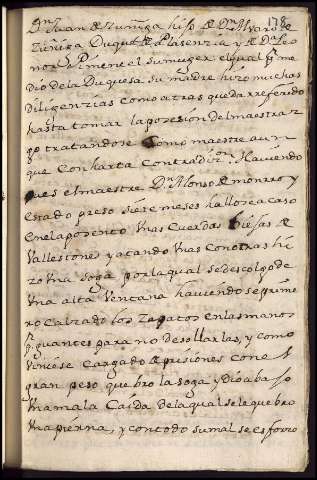 178
Dn Juan de Zuñiga hijo de Dn Alvaro de
Zuñiga Duque de Plasenzia y de Da Leo
nor Pimentel su muger el qual pr me
dio de la Duquesa su madre hizo muchas
diligenzias como atras queda rreferido
hasta tomar la posesion del maestraz
go tratandose como maestre aun
que con harta contradizon. Haviendo
pues el maestre Dn Alonso de monrroy
estado preso siete meses hallose acaso
en el aposento unas cuerdas viejas de
Vallestones y atando unas con otras hi
zo una soga por la qual se descolgo de
una alta ventana haviendose prime
ro calzado los zapatos en las manos
pr guantes para no desollarlas, y como
viniese cargado de prisiones con el
gran peso quebro la soga y dio abajo
una mala caida de la qual se le quebro
una pierna, y con todo su mal se esforzo